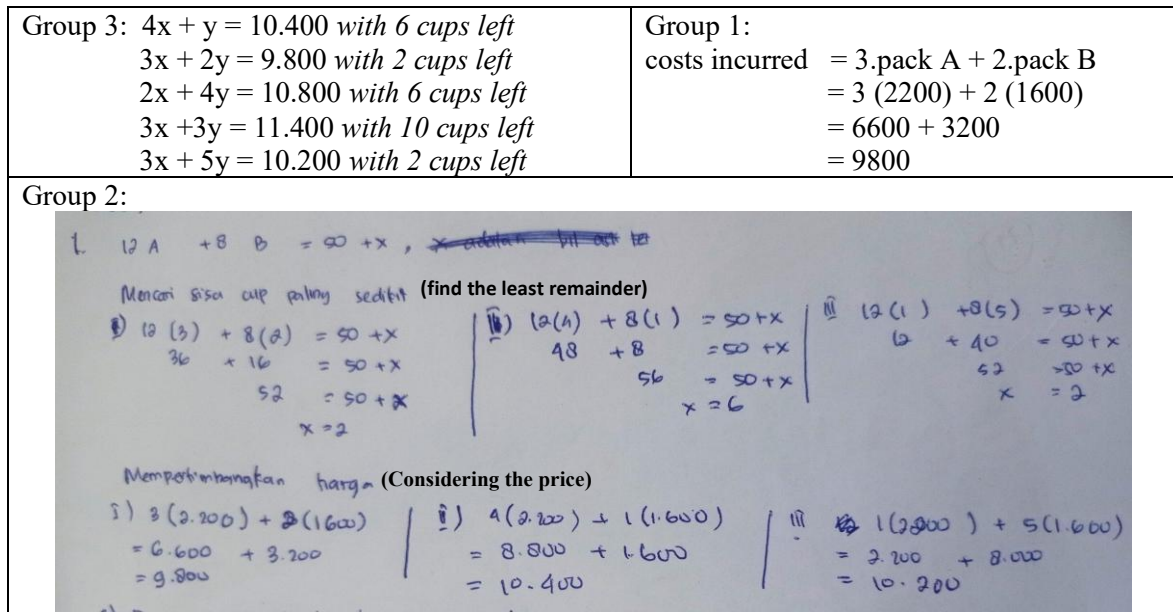 Group 3: 4x + y = 10.400 with 6 cups left
3x + 2y = 9.800 with 2 cups left
2x + 4y = 10.800 with 6 cups left
3x +3y = 11.400 with 10 cups left
3x + 5y = 10.200 with 2 cups left
Group 1:
costs incurred = 3.pack A + 2.pack B
= 3 (2200) + 2 (1600)
= 6600 + 3200
= 9800
Group 2:
1. 12 A + 8 B = 50 + x ,
Mencari sisa cup paling sedikit (find the least remainder)
i) 12 (3) + 8(2) = 50 + x
36 + 16 = 50 + x
52 = 50 + x
x = 2
ii) 12(4) + 8(1) = 50 + x
48 + 8 = 50 + x
56 = 50 + x
x = 6
iii 12(1) + 8(5) = 50 + x
12 + 40 = 50 + x
52 = 50 + x
x = 2
Mempertimbangkan harga (Considering the price)
i) 3 (2.200) + 2(1600)
= 6.600 + 3.200
= 9.800
ii) 4(2.200) + 1(1.600)
= 8.800 + 1.600
= 10.400
iii 1(2200) + 5(1.600)
= 2.200 + 8.000
= 10.200